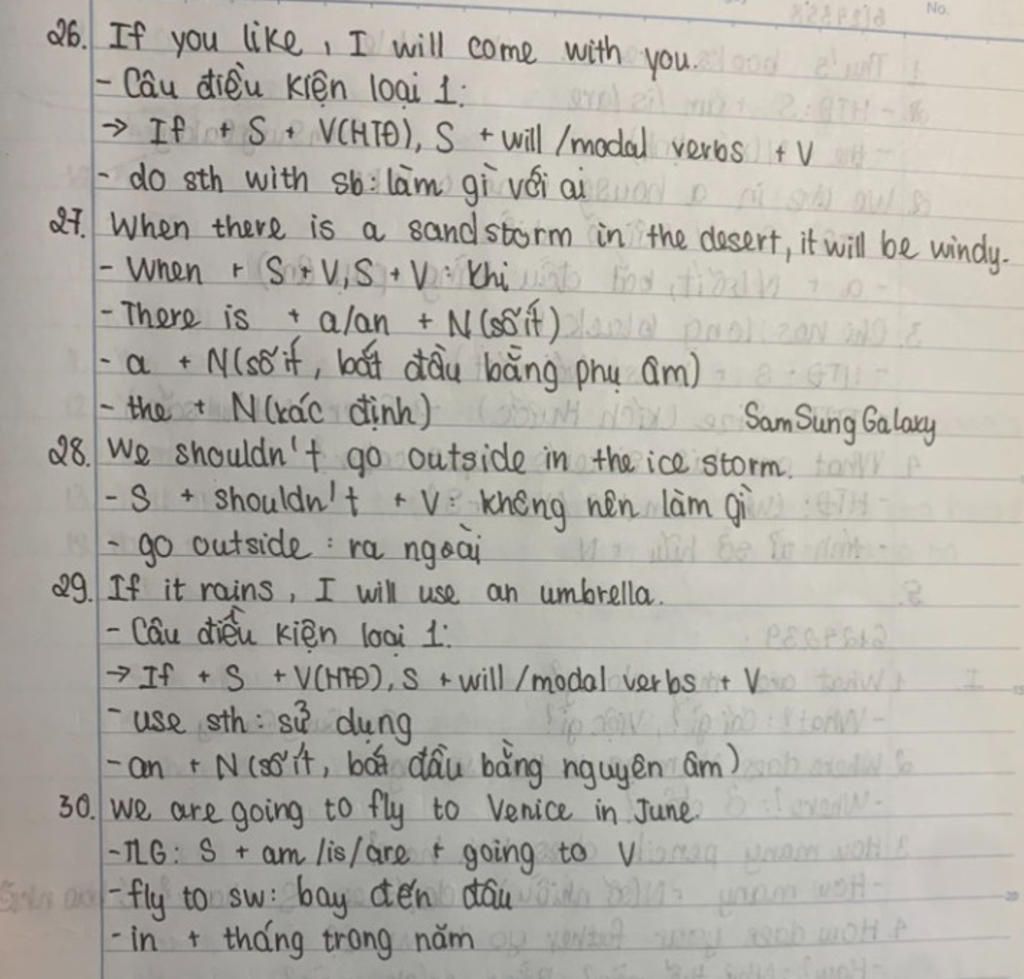 No.
26. If you like, I will come with you.
- Câu điều kiện loại 1:
→ If + S + V(HTĐ), S + will/modal verbs + V
- do sth with sb: làm gì với ai
27. When there is a sandstorm in the desert, it will be windy.
- When + S + V, S + V: khi
- There is + a/an + N(số ít)
- a + N(số ít, bắt đầu bằng phụ âm)
- the + N(xác định)
SamSung Galaxy
28. We shouldn't go outside in the ice storm.
- S + shouldn't + V: không nên làm gì
- go outside: ra ngoài
29. If it rains, I will use an umbrella.
- Câu điều kiện loại 1:
→ If + S + V(HTĐ), S + will/modal verbs + V
- use sth: sử dụng
- an + N(số ít, bắt đầu bằng nguyên âm)
30. We are going to fly to Venice in June.
- TLG: S + am/is/are + going to V
- fly to sw: bay đến đâu
- in + tháng trong năm